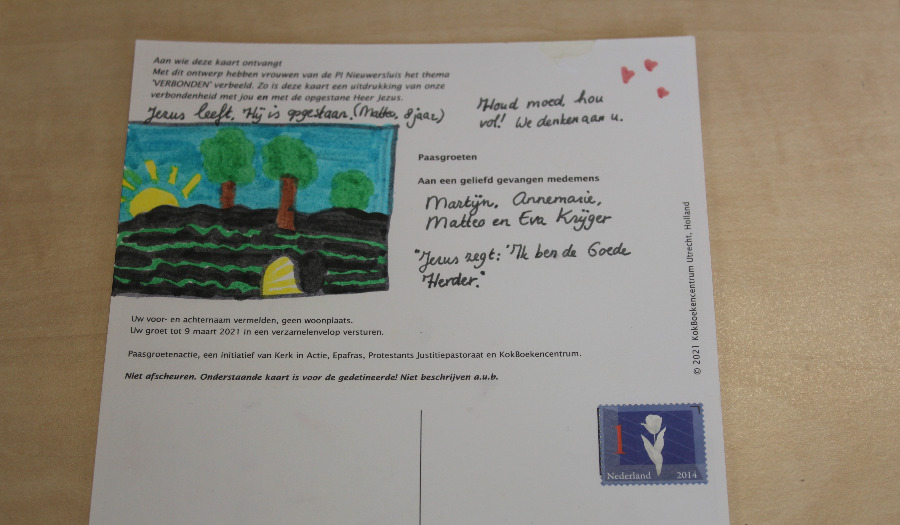 Aan wie deze kaart ontvangt
Met dit ontwerp hebben vrouwen van de PI Nieuwersluis het thema
'VERBONDEN' verbeeld. Zo is deze kaart een uitdrukking van onze
verbondenheid met jou en met de opgestane Heer Jezus.
Jezus leeft. Hij is opgestaan. (Matteo, 8 jaar)
Houd moed, hou
vol! We denken aan u.
Paasgroeten
Aan een geliefd gevangen medemens
Martijn, Annemarie,
Matteo en Eva Krijger
"Jezus zegt: 'Ik ben de Goede
Herder.'"
Uw voor- en achternaam vermelden, geen woonplaats.
Uw groet tot 9 maart 2021 in een verzamelenvelop versturen.
Paasgroetenactie, een initiatief van Kerk in Actie, Epafras, Protestants Justitiepastoraat en KokBoekencentrum.
Niet afscheuren. Onderstaande kaart is voor de gedetineerde! Niet beschrijven a.u.b.
© 2021 KokBoekencentrum Utrecht, Holland
1
Nederland 2014